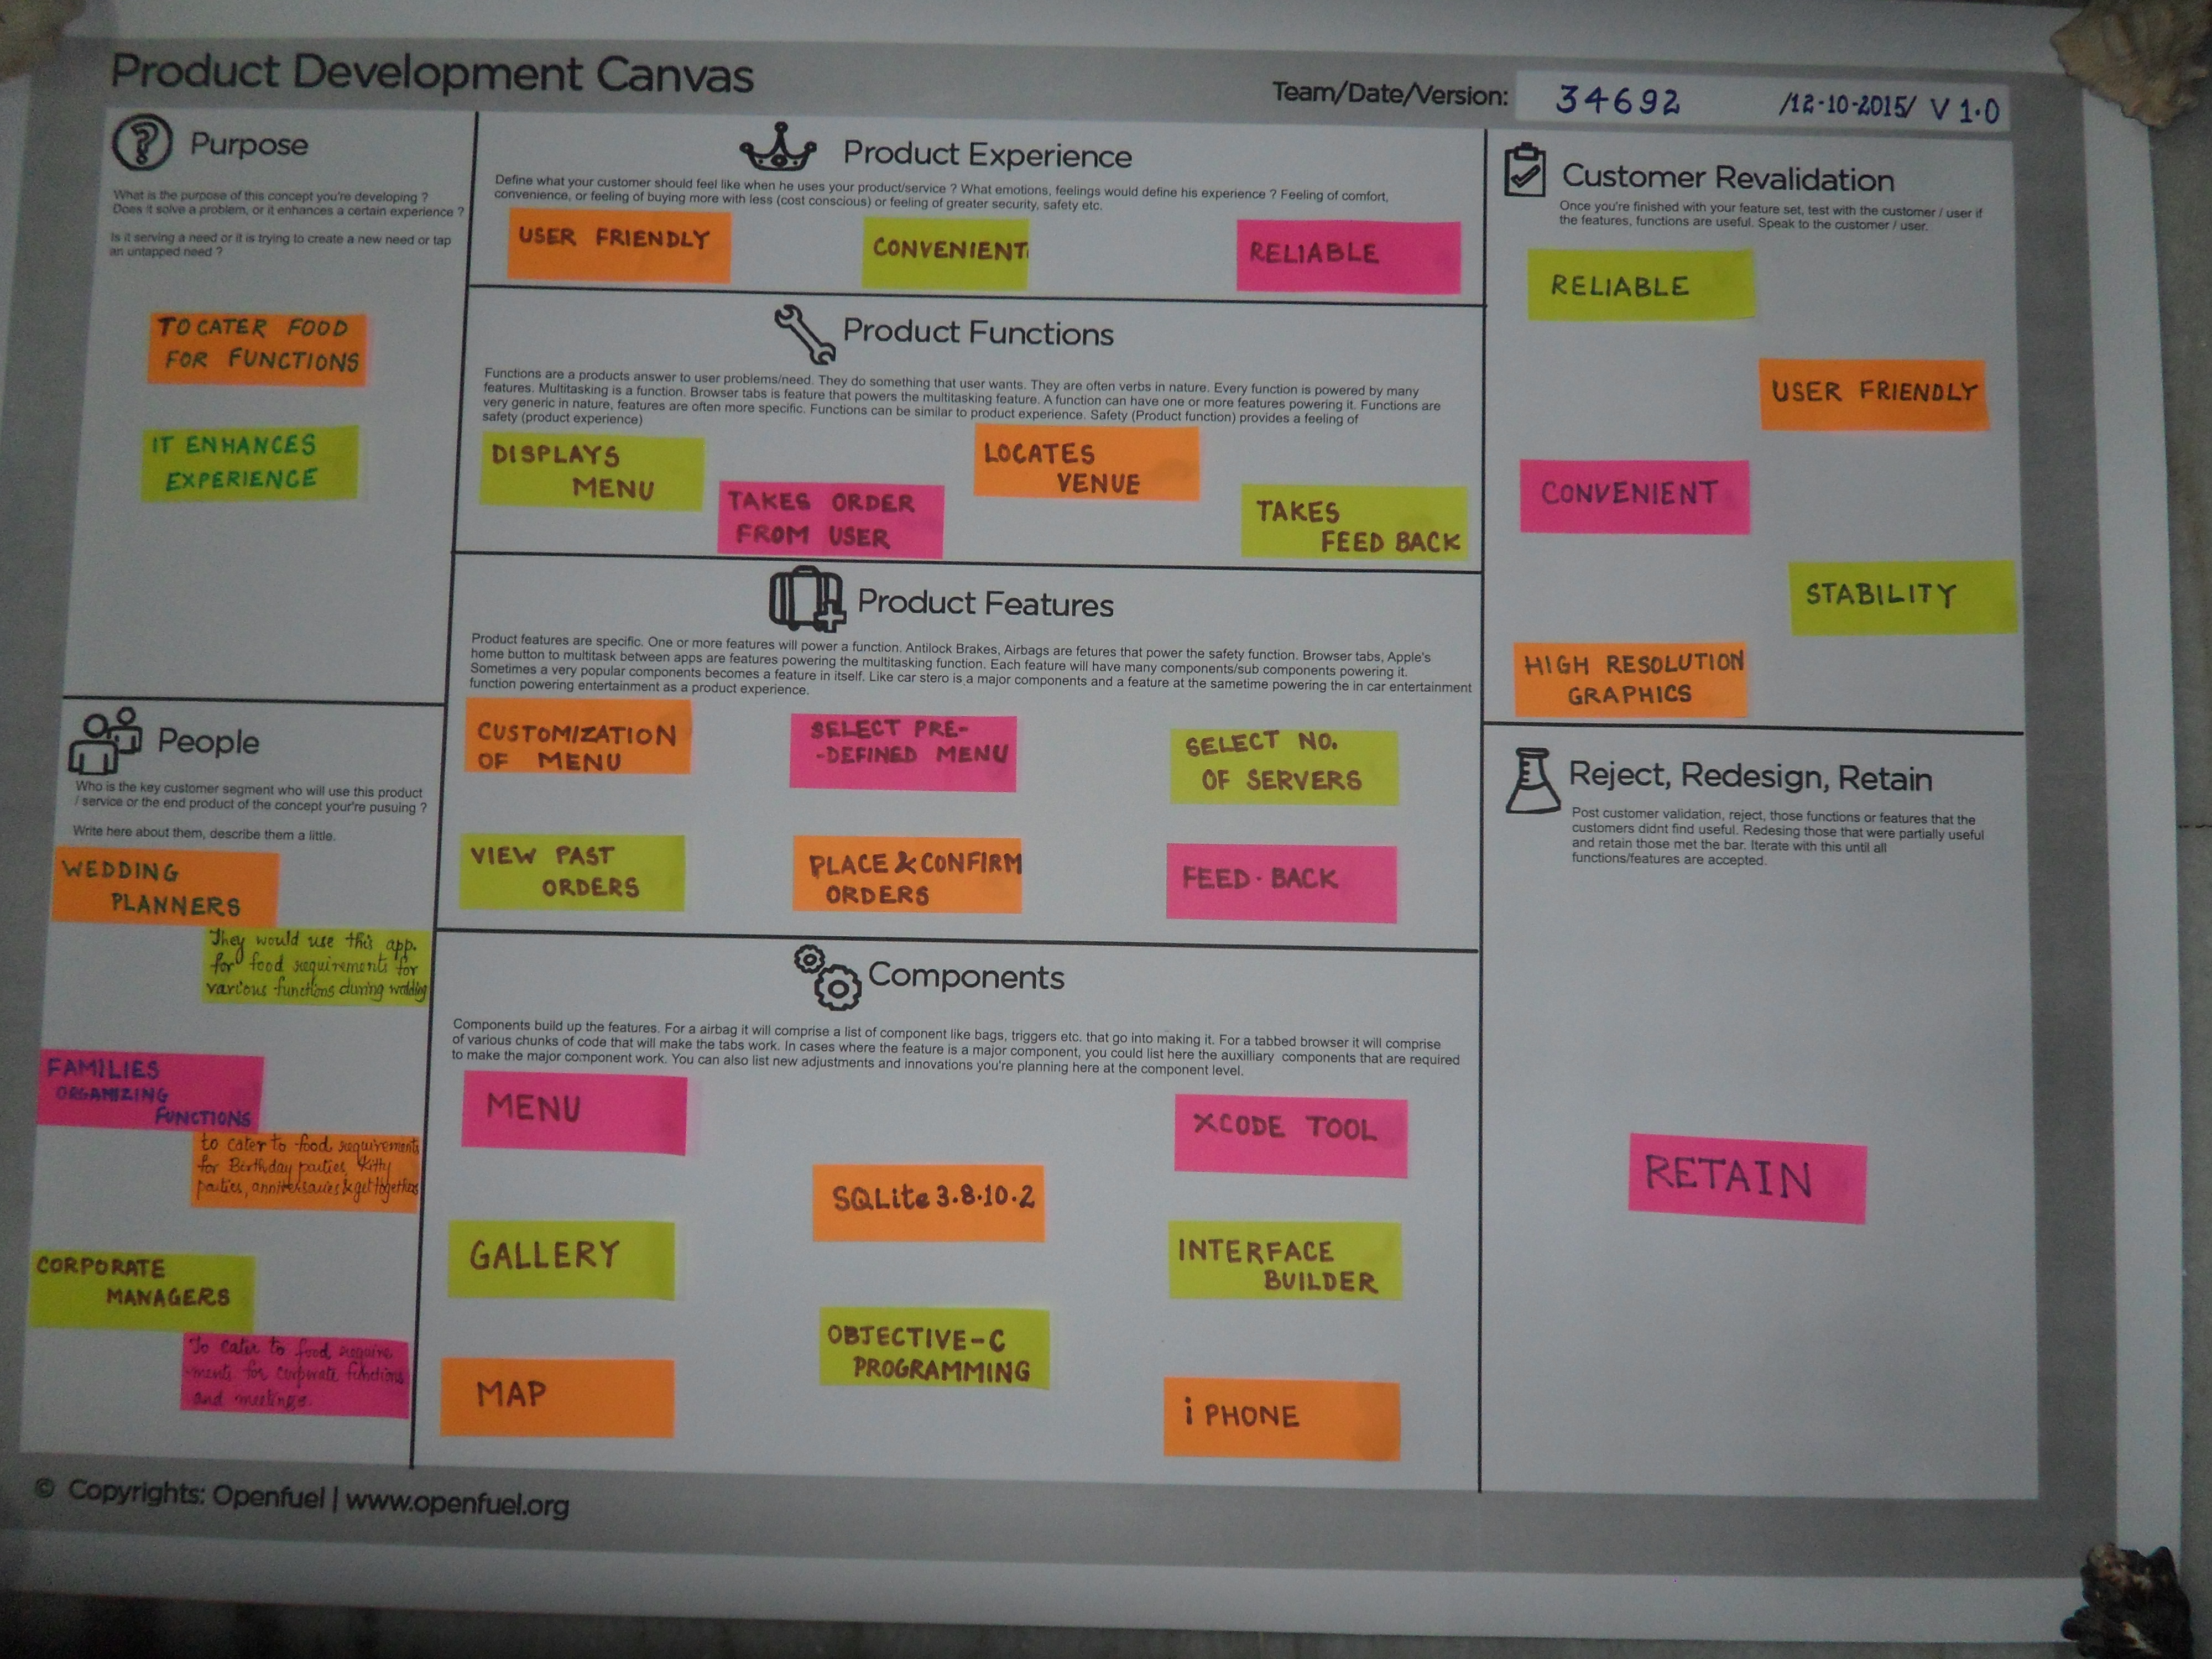 Product Development Canvas
Team/Date/Version: 34692 /12-10-2015/ V 1.0
Purpose
What is the purpose of this concept you're developing ?
Does it solve a problem, or it enhances a certain experience ?
Is it serving a need or it is trying to create a new need or tap
an untapped need ?
TO CATER FOOD
FOR FUNCTIONS
IT ENHANCES
EXPERIENCE
People
Who is the key customer segment who will use this product
/ service or the end product of the concept your're pusuing ?
Write here about them, describe them a little.
WEDDING
PLANNERS
They would use this app.
for food requirements for
various functions during wedding
FAMILIES
ORGANIZING
FUNCTIONS
to cater to food requirements
for Birthday parties, Kitty
parties, anniversaries & get togethers
CORPORATE
MANAGERS
To cater to food require
-ments for corporate functions
and meetings.
Product Experience
Define what your customer should feel like when he uses your product/service ? What emotions, feelings would define his experience ? Feeling of comfort,
convenience, or feeling of buying more with less (cost conscious) or feeling of greater security, safety etc.
USER FRIENDLY
CONVENIENT
RELIABLE
Product Functions
Functions are a products answer to user problems/need. They do something that user wants. They are often verbs in nature. Every function is powered by many
features. Multitasking is a function. Browser tabs is feature that powers the multitasking feature. A function can have one or more features powering it. Functions are
very generic in nature, features are often more specific. Functions can be similar to product experience. Safety (Product function) provides a feeling of
safety (product experience)
DISPLAYS
MENU
TAKES ORDER
FROM USER
LOCATES
VENUE
TAKES
FEED BACK
Product Features
Product features are specific. One or more features will power a function. Antilock Brakes, Airbags are fetures that power the safety function. Browser tabs, Apple's
home button to multitask between apps are features powering the multitasking function. Each feature will have many components/sub components powering it.
Sometimes a very popular components becomes a feature in itself. Like car stero is a major components and a feature at the sametime powering the in car entertainment
function powering entertainment as a product experience.
CUSTOMIZATION
OF MENU
SELECT PRE-
-DEFINED MENU
SELECT NO.
OF SERVERS
VIEW PAST
ORDERS
PLACE & CONFIRM
ORDERS
FEED-BACK
Components
Components build up the features. For a airbag it will comprise a list of component like bags, triggers etc. that go into making it. For a tabbed browser it will comprise
of various chunks of code that will make the tabs work. In cases where the feature is a major component, you could list here the auxilliary components that are required
to make the major component work. You can also list new adjustments and innovations you're planning here at the component level.
MENU
GALLERY
MAP
SQLite 3.8.10.2
OBJECTIVE-C
PROGRAMMING
XCODE TOOL
INTERFACE
BUILDER
iPHONE
Customer Revalidation
Once you're finished with your feature set, test with the customer / user if
the features, functions are useful. Speak to the customer / user.
RELIABLE
USER FRIENDLY
CONVENIENT
STABILITY
HIGH RESOLUTION
GRAPHICS
Reject, Redesign, Retain
Post customer validation, reject, those functions or features that the
customers didnt find useful. Redesing those that were partially useful
and retain those met the bar. Iterate with this until all
functions/features are accepted.
RETAIN
© Copyrights: Openfuel | www.openfuel.org